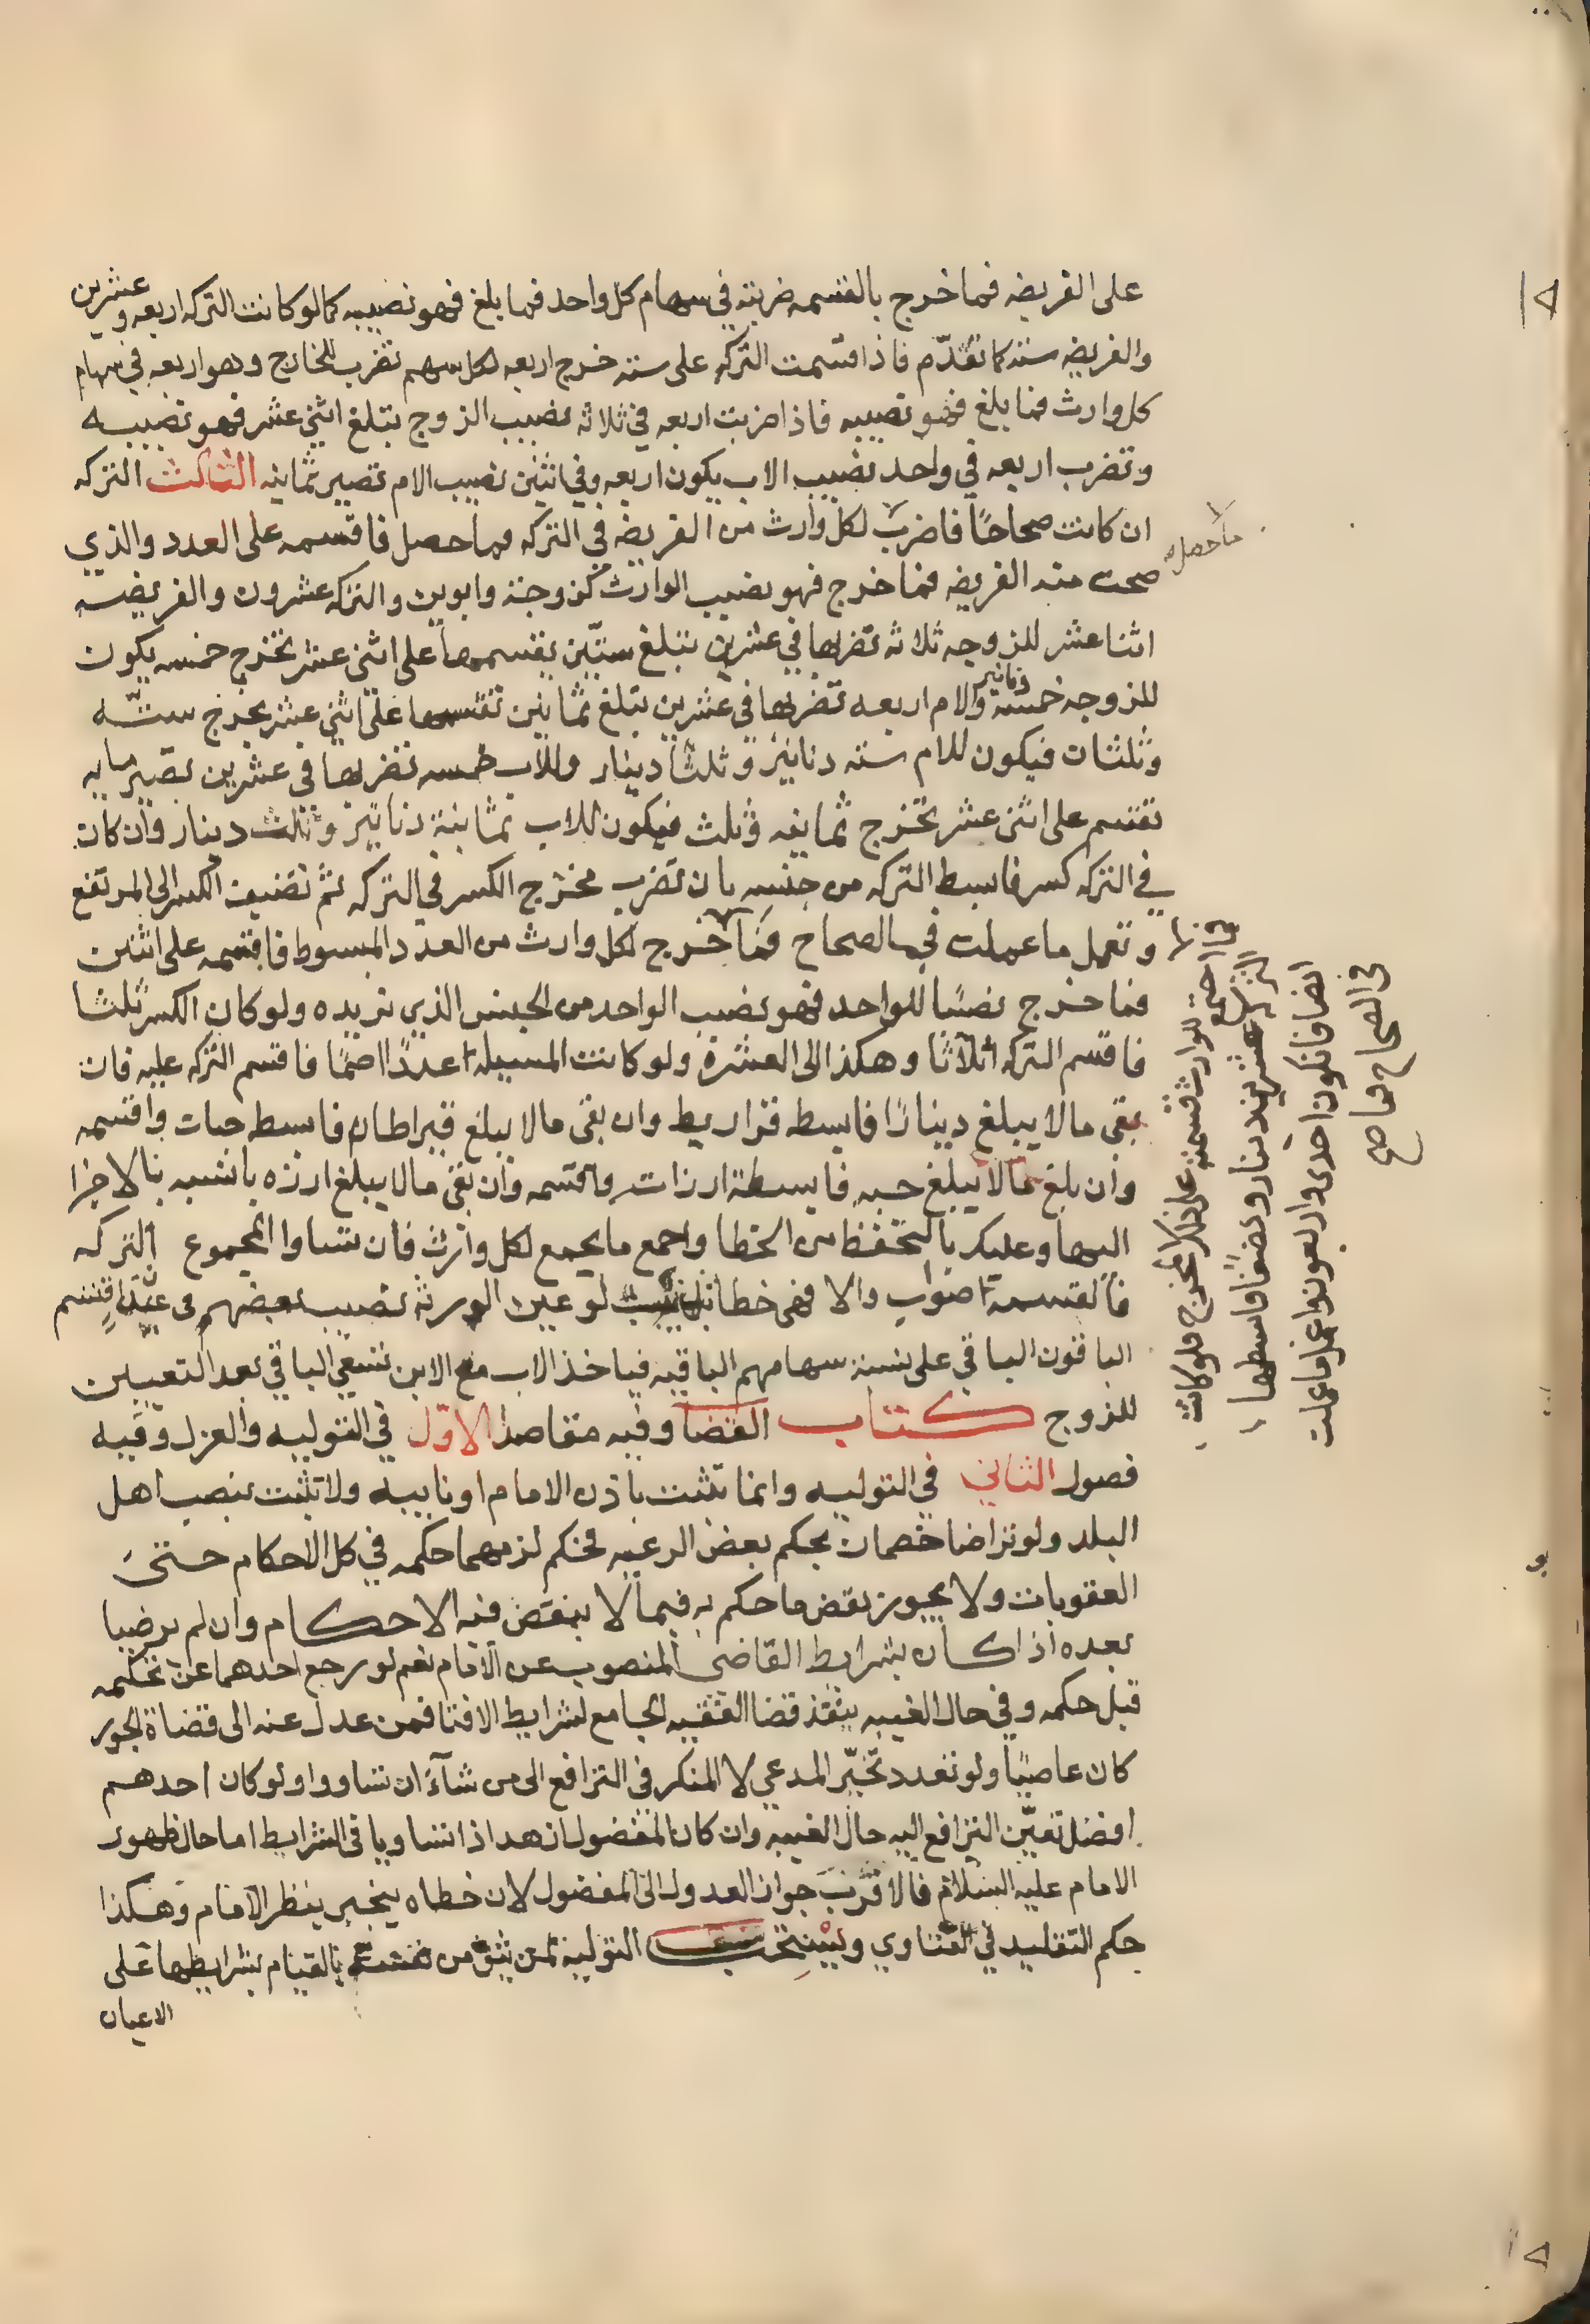 على الفريضه فما خرج بالقسمه ضربته في سهام كل واحد فما بلغ فهو نصيبه كما لو كانت التركه اربعه وعشرين
والفريضه سته كما تقدّم فاذا قسمت التركه على سته خرج اربعه لكل سهم تضرب الخارج وهو اربعه في سهام
كل وارث فما بلغ فهو نصيبه فاذا ضربت اربعه في ثلاثه نصيب الزوج تبلغ اثنى عشر فهو نصيبه
وتضرب اربعه في واحد نصيب الاب يكون اربعه وفي اثنين نصيب الام تصير ثمانيه الثالث التركه
ان كانت صحاحًا فاضرب لكل وارث من الفريضه في التركه فما حصل فاقسمه على العدد والذي
ما حصل له
صحت منه الفريضه فما خرج فهو نصيب الوارث كزوجة وابوين والتركه عشرون والفريضه
اثنا عشر للزوجه ثلاثه تضربها في عشرين تبلغ ستّين تقسمها على اثنى عشر تخرج خمسه يكون
للزوجه خمسة دنانير والام اربعه تضربها في عشرين تبلغ ثمانين تقسمها على اثنى عشر يخرج ستّه
وثلثان فيكون للام ستة دنانير وثلثا دينار وللاب خمسه تضربها في عشرين تصير مايه
تقسم على اثنى عشر يخرج ثمانيه وثلث فيكون للاب ثمانية دنانير وثلث دينار وان كان
في التركه كسر فابسط التركه من جنسه بان تضرب مخرج الكسر في التركه ثم تضيف الكسر الى المرتفع
وتعمل ما عملت في الصحاح فما خرج لكل وارث من العدد المبسوط فاقسمه على اثنين
فما خرج نصيبًا للواحد فهو نصيب الواحد من الجنس الذي تريده ولو كان الكسر ثلثا
فاقسم التركه اثلاثا وهكذا الى العشرة ولو كانت المسيله عددًا اصمًا فاقسم التركه عليه فان
بقي ما لا يبلغ دينارًا فابسطه قراريط وان بقى ما لا يبلغ قيراطا فابسطه حبات واقسمه
وان بلغ ما لا يبلغ حبه فابسطه ارزات واقسمه وان بقى ما لا يبلغ ارزه بالنسبه بالاجزا
اليها وعليك بالتحفظ من الخطا واجمع ما يجمع لكل وارث فان تساوا المجموع التركه
فالقسمه صواب والا فهى خطا لو عين الورثه نصيب بعضهم في عين اقتسم
الباقون الباقي على نسبة سهامهم الباقيه فياخذ الاب مع الابن تسعي الباقي بعد التعيين
للزوج كتاب القضا وفيه مقاصد الاوّل في التوليه والعزل وفيه
فصول الثاني في التوليه وانما تثبت باذن الامام او نايبه ولا تثبت بنصب اهل
البلد ولو تراضا خصمان بحكم بعض الرعيه فحكم لزمهما حكمه في كل الاحكام حتى
العقوبات ولا يجوز نقض ما حكم به فيما لا ينقض فيه الاحكام وان لم يرضيا
بعده اذا كان بشرايط القاضى المنصوب عن الامام نعم لو رجع احدهما عن تحكيمه
قبل حكمه وفي حال الغيبه ينفذ قضا الفقيه الجامع لشرايط الافتا فمن عدل عنه الى قضاة الجور
كان عاصيًا ولو تعدد تخيّر المدعي لا المنكر في الترافع الى من شآء ان تساووا ولو كان احدهم
افضل تعيّن الترافع اليه حال الغيبه وان كان المفضول ازهد اذا تساويا في الشرايط اما حال ظهور
الامام عليه السّلام فالاقرب جواز العدول الى المفضول لان خطاه ينجبر بنظر الامام وهكذا
حكم التقليد في الفتاوي ويستحب التولية لمن يثق من نفسه بالقيام بشرايطها على
الاعيان
فما اجتمع للوارث قسمته على ذلك المخرج فلو كانت
التركه عشرين دينار ونصفًا فابسطها
انصافا تكون احدى واربعون واعمل ما عملت
في الصحاح